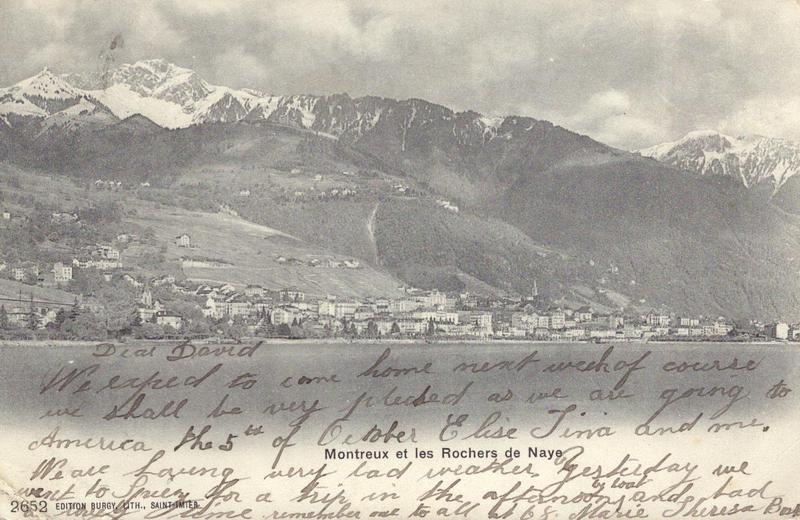 Dear David
We expect to come home next week of course
we shall be very pleased as we are going to
America the 5th of October Elise Tina and me.
Montreux et les Rochers de Naye
We are having very bad weather Yesterday we
went to Spiez for a trip in the afternoon by boat and had
a time remember me to all at 68. Marie Theresa
2652 EDITION BURGY, LITH., SAINT-IMIER.